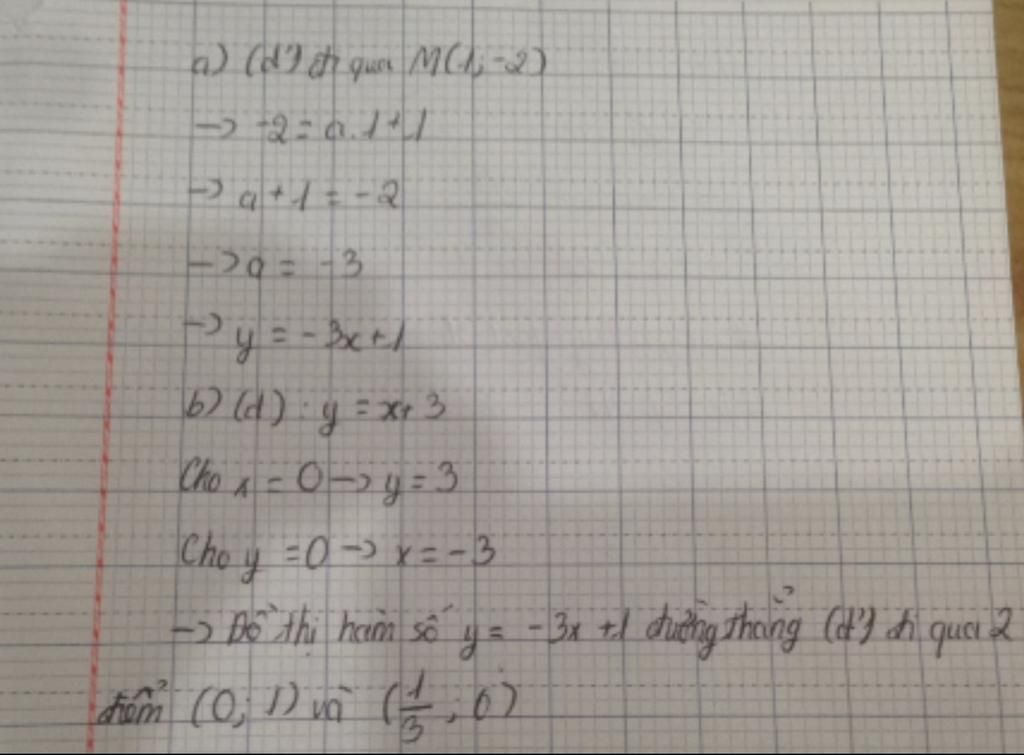 a) (d') đi qua M(1; -2)
-> -2 = a.1+1
-> a + 1 = -2
-> a = -3
-> y = -3x+1
b) (d) : y = x+3
Cho x = 0 -> y = 3
Cho y = 0 -> x = -3
-> Đồ thị hàm số y = -3x +1 đường thẳng (d') đi qua 2
điểm (0; 1) và (1/3; 0)